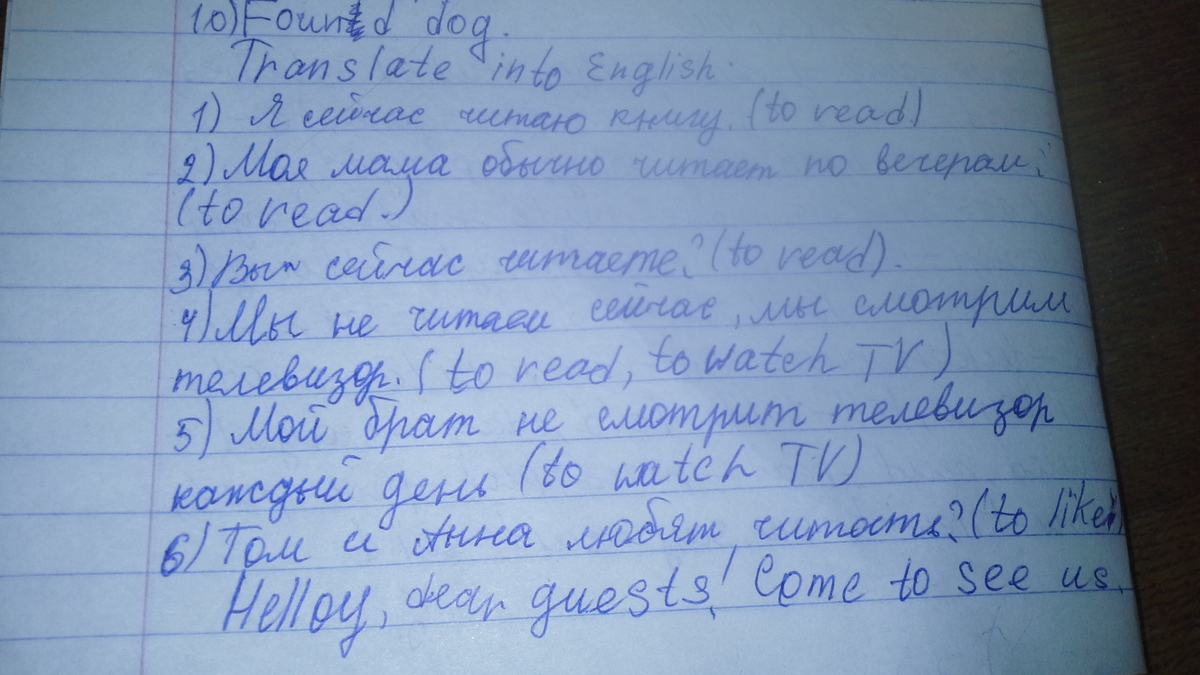 10) Found dog.
Translate into English.
1) Я сейчас читаю книгу. (to read)
2) Моя мама обычно читает по вечерам?
(to read.)
3) Вы сейчас читаете? (to read).
4) Мы не читаем сейчас, мы смотрим
телевизор. (to read, to watch TV)
5) Мой брат не смотрит телевизор
каждый день (to watch TV)
6) Том и Анна любят читать? (to like)
Helloy, dear guests! Come to see us.